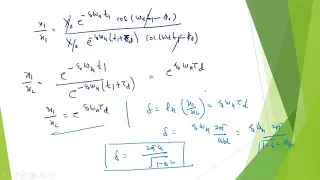 x₁/x₁ = X₀ e^(-ξωₙt₁) cos(ω_d t₁ - ϕ₀) / X₀ e^(-ξωₙ(t₁+τ_d)) cos(ω_d t₁ - ϕ₀)
x₁/x₂ = e^(-ξωₙt₁) / e^(-ξωₙ(t₁+τ_d)) = e^(ξωₙτ_d)
x₁/x₂ = e^(ξωₙτ_d) | δ = ln(x₁/x₂) = ξωₙτ_d
δ = ξωₙ 2π/ω_d = ξωₙ 2π/√(1-ξ²) ωₙ
δ = 2πξ/√(1-ξ²)